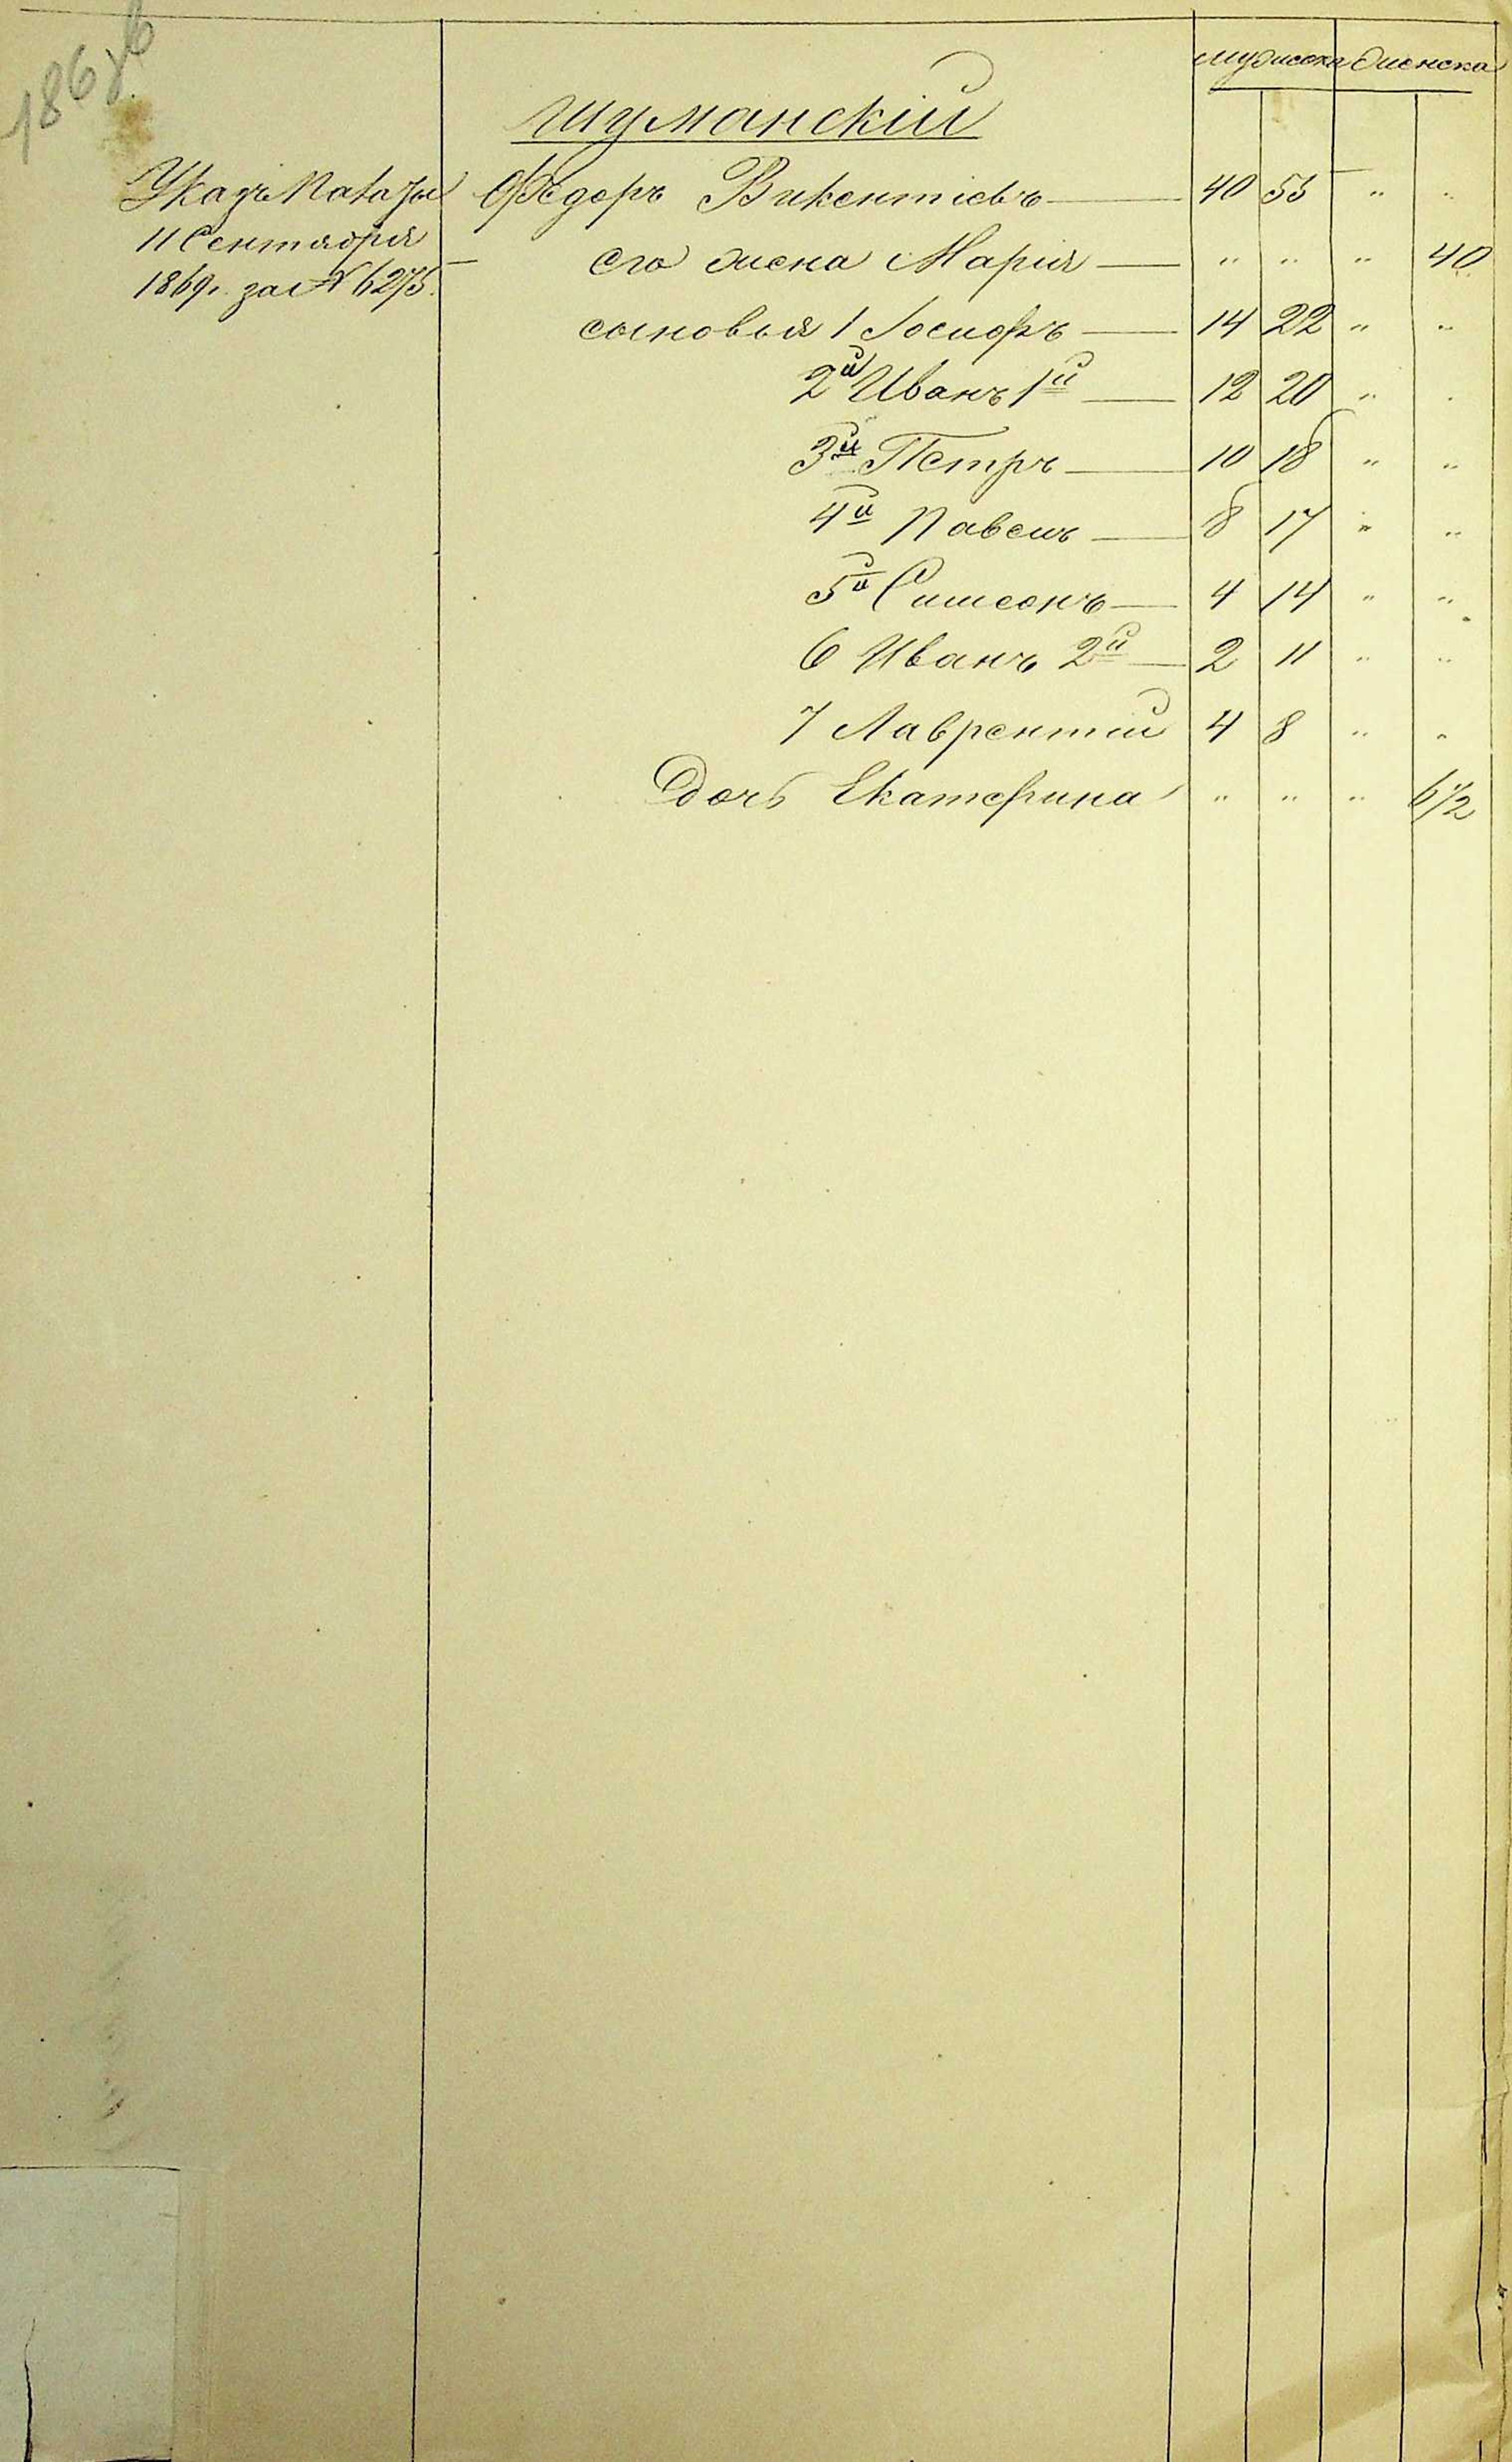 мужеска женска
Шуманскій
Указъ Палаты Ѳедоръ Викентіевъ — 40 55 " "
11 Сентября
его жена Марія — " " " 40
1869 г. за № 6275.
сыновья 1 Іосифъ — 14 22 " "
2й Иванъ 1й — 12 20 " "
3й Петръ — 10 18 " "
4й Павелъ — 8 17 " "
5й Симеонъ — 4 14 " "
6 Иванъ 2й — 2 11 " "
7 Лаврентій 4 8 " "
Дочь Екатерина " " " 6 1/2